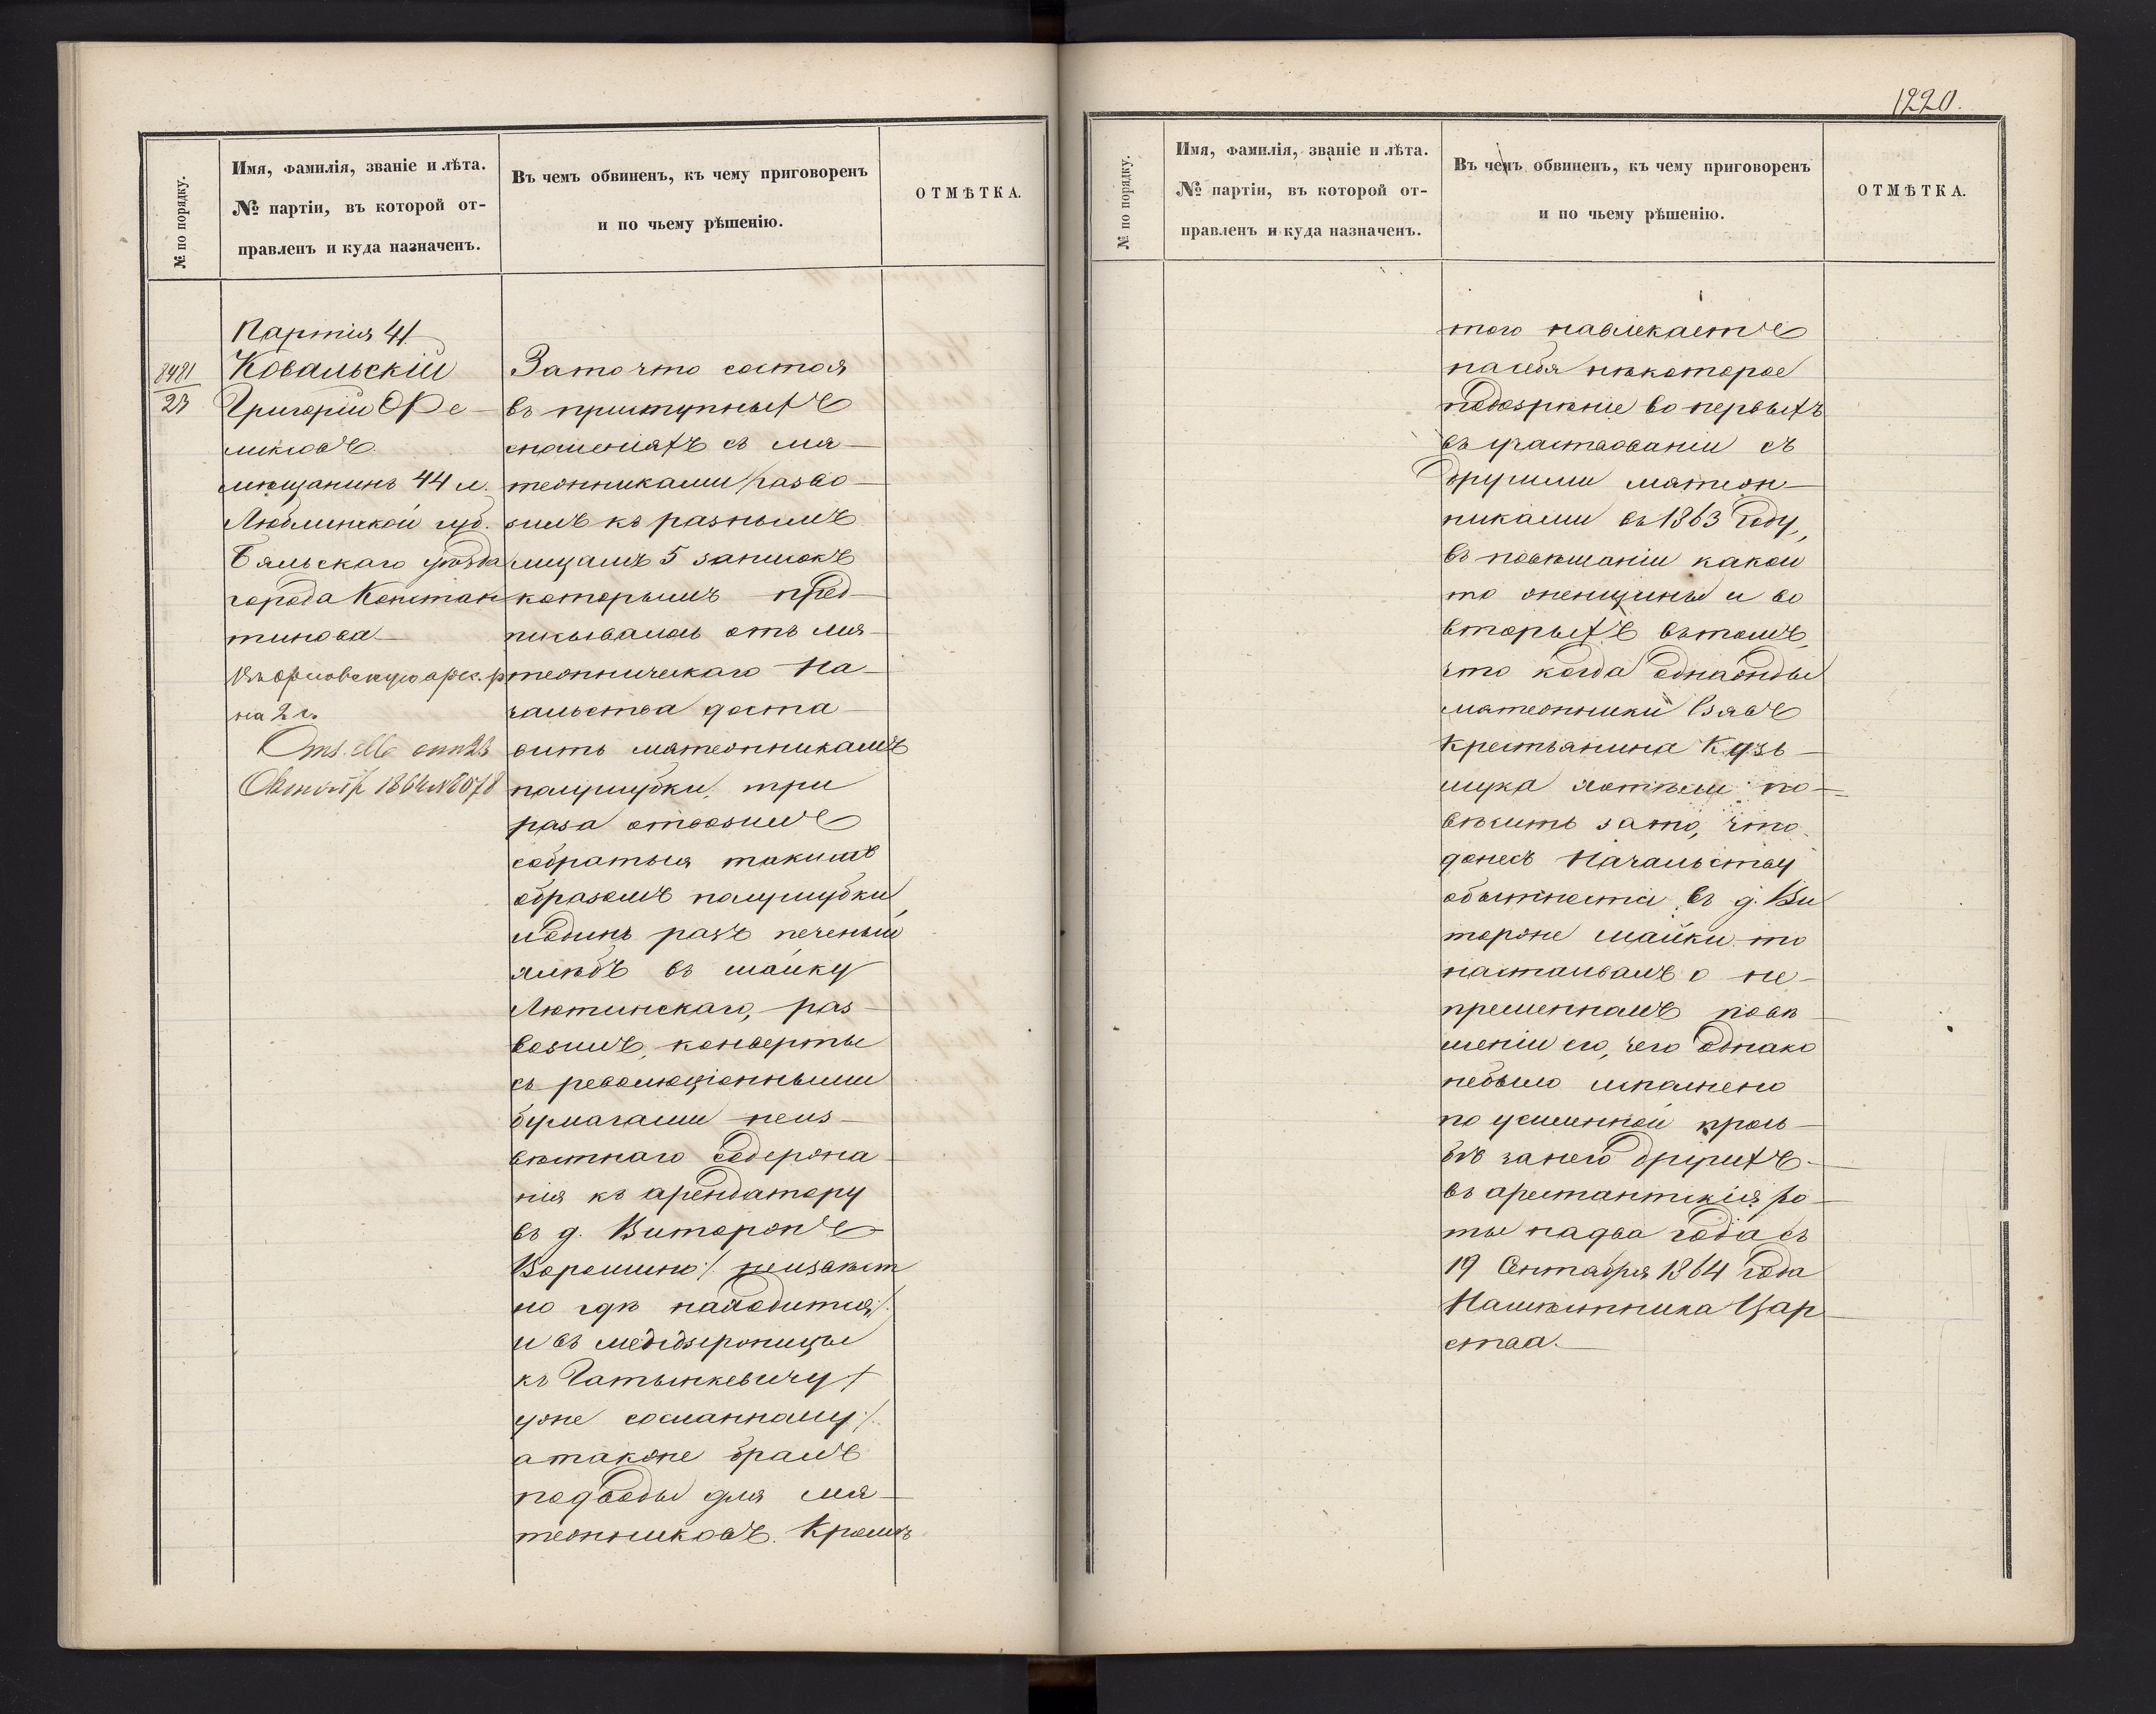 1220.
№ по порядку.
Имя, фамилія, званіе и лѣта.
№ партіи, въ которой от-
правленъ и куда назначенъ.
Въ чемъ обвиненъ, къ чему приговоренъ
и по чьему рѣшенію.
ОТМѢТКА.
Партія 41
8481
23
Ковальскій
Григорій Фе-
ликсовъ
мѣщанинъ 44 л.
Люблинской губ.
Бяльскаго уѣзда
города Констан
тинова
Въ арес. р
на 2 г.
Отз.
1864 №
За то что состоя
въ приступныхъ
сношеніяхъ съ мя-
тежниками разво-
зилъ къ разнымъ
лицамъ 5 записокъ
которымъ пред-
писывалось отъ мя-
тежническаго На-
чальства доста-
вить мятежникамъ
полушубки, три
раза отвозилъ
собратыя такимъ
образомъ полушубки,
и одинъ разъ печеный
хлѣбъ въ шайку
Лютинскаго, раз-
возилъ, конверты
съ революціонными
бумагами неиз-
вѣстнаго содержа
нія къ арендатору
въ д. Виторожъ
Ворошило /: неизвѣст
но гдѣ находится :/
и въ
къ Гатынкевичу /:
уже сосланному :/
а также бралъ
подводы для мя-
тежниковъ. Кромѣ
№ по порядку.
Имя, фамилія, званіе и лѣта.
№ партіи, въ которой от-
правленъ и куда назначенъ.
Въ чемъ обвиненъ, къ чему приговоренъ
и по чьему рѣшенію.
ОТМѢТКА.
того навлекаетъ
на себя нѣкоторое
подозрѣніе во первыхъ
въ участвованіи съ
другими мятеж-
никами въ 1863 году,
въ повѣшаніи какой
то женщины и во
вторыхъ въ томъ,
что когда однажды
мятежники взявъ
крестьянина Кузь-
мука хотѣли по-
вѣсить за то, что
донесъ Начальству
обытности въ д. Ви
тороже шайки то
настаивалъ о не-
пременномъ повѣ
шеніи его, чего однако
небыло исполнено
по усиленной прось-
бѣ за него другихъ-
въ арестантскія ро-
ты на два года съ
19 Сентября 1864 года
Намѣстника Цар
ства.